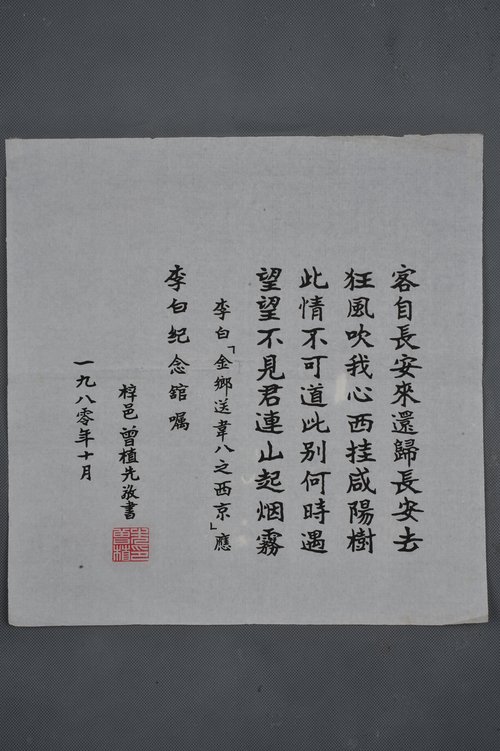 客自長安來還歸長安去
狂風吹我心西挂咸陽樹
此情不可道此别何時遇
望望不見君連山起烟霧
李白「金鄉送韋八之西京」應
李白纪念館嘱
梓邑曾植先敬書
一九八〇年十月